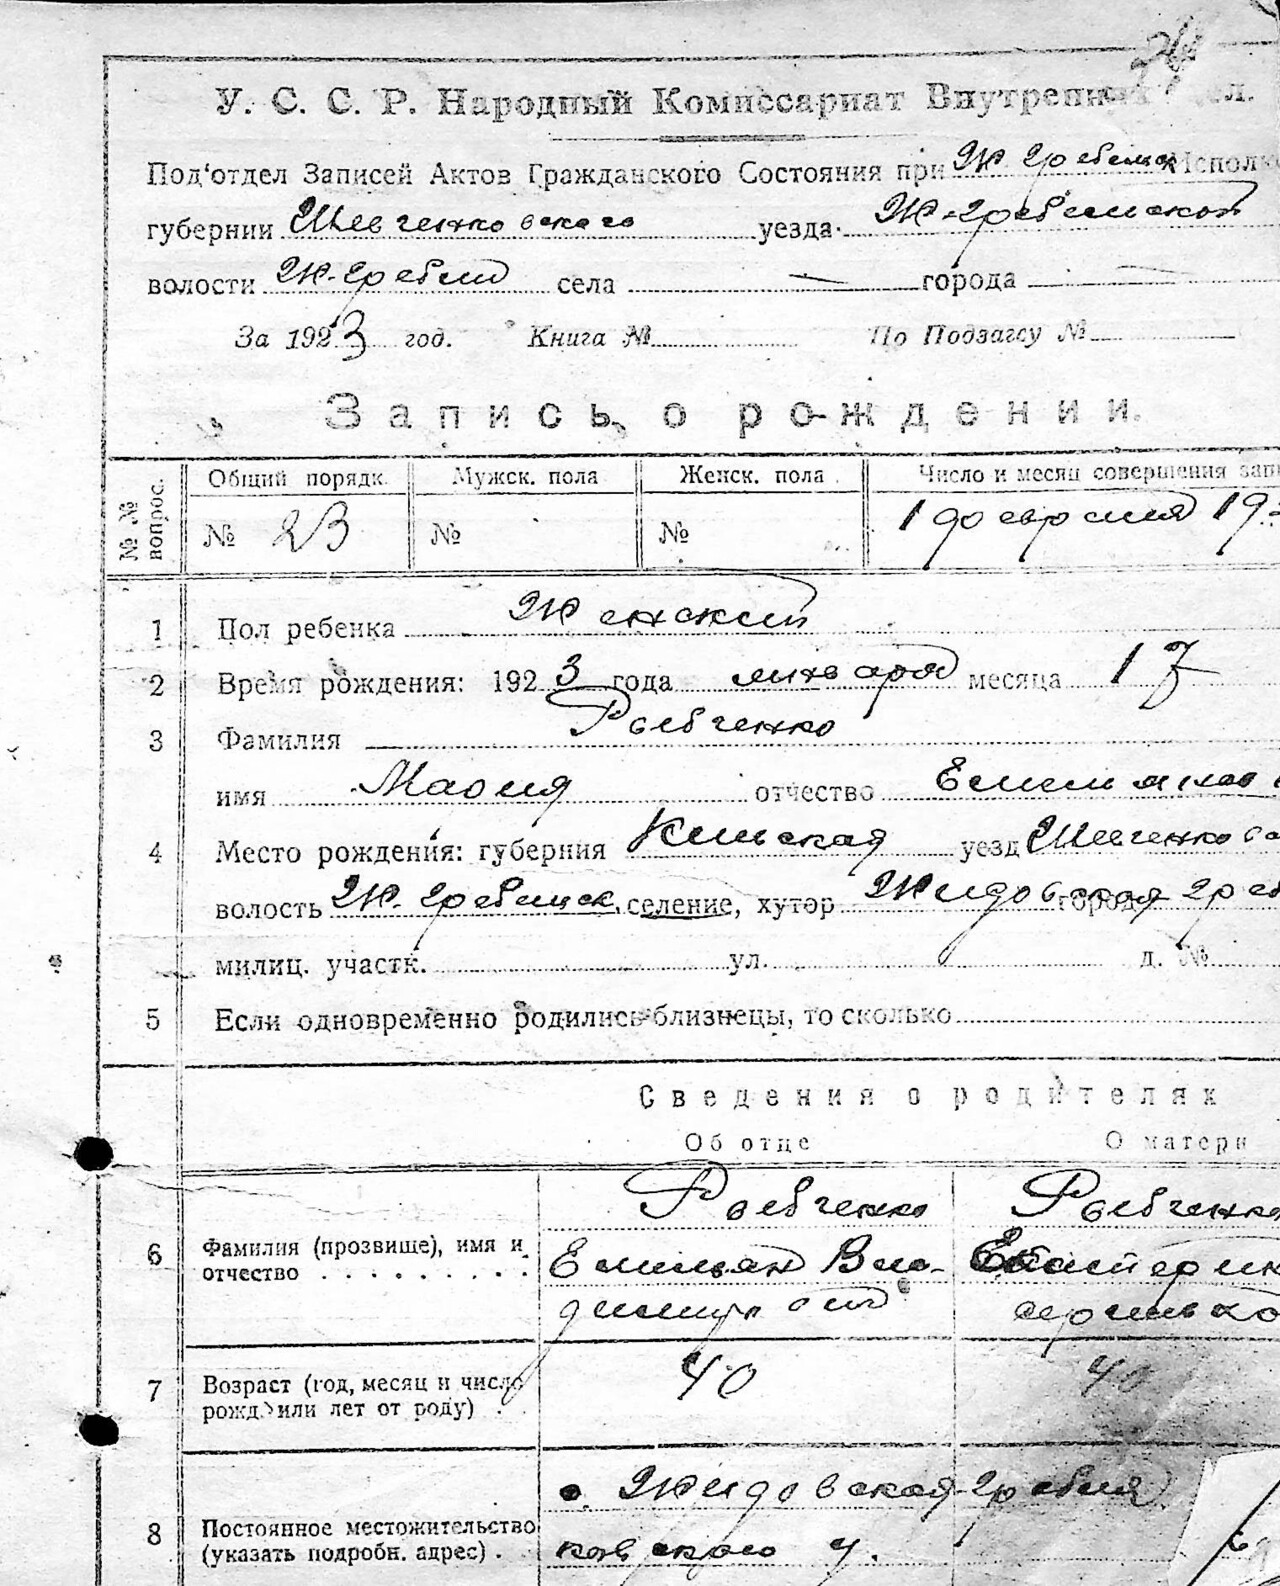 У. С. С. Р. Народный Комиссариат Внутренн дел.
Под'отдел Записей Актов Гражданского Состояния при Ж. Гребельск Исполк
губернии Шевченковского уезда Ж-Гребельской
волости Ж-Гребли села города
За 1923 год. Книга № По Подзагсу №
Запись о рождении.
№ № вопрос. Общий порядк. Мужск. пола Женск. пола Число и месяц совершения запи
№ 23 № № 1 февраля 19
1 Пол ребенка Женский
2 Время рождения: 1923 года января месяца 17
3 Фамилия Рыбченко
имя Мария отчество Емельянов
4 Место рождения: губерния Киевская уезд Шевченковс
волость Ж. Гребельск. селение, хутор Жидовская города Греб
милиц. участк. ул. д. №
5 Если одновременно родились близнецы, то сколько
Сведения о родителях
Об отце О матери
Рыбченко Рыбченко
6 Фамилия (прозвище), имя и Емельян Вла- Екатерин
отчество димиров
7 Возраст (год, месяц и число 40 40
рожд. или лет от роду)
с. Жидовская-Гребля
8 Постоянное местожительство
(указать подробн. адрес) у.